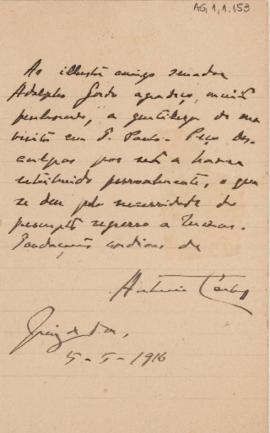 AG,1,1.153
Ao illustre amigo senador
Adolpho Gordo agradeço, muito
penhorado, a gentileza de sua
visita em S. Paulo. Peço des-
culpas por não a haver
retribuido pessoalmente, o que
se deu pela necessidade de
regresso a Minas.
Saudações cordiaes de
Antonio Carlos
Juiz de Fóra,
5-5-1916